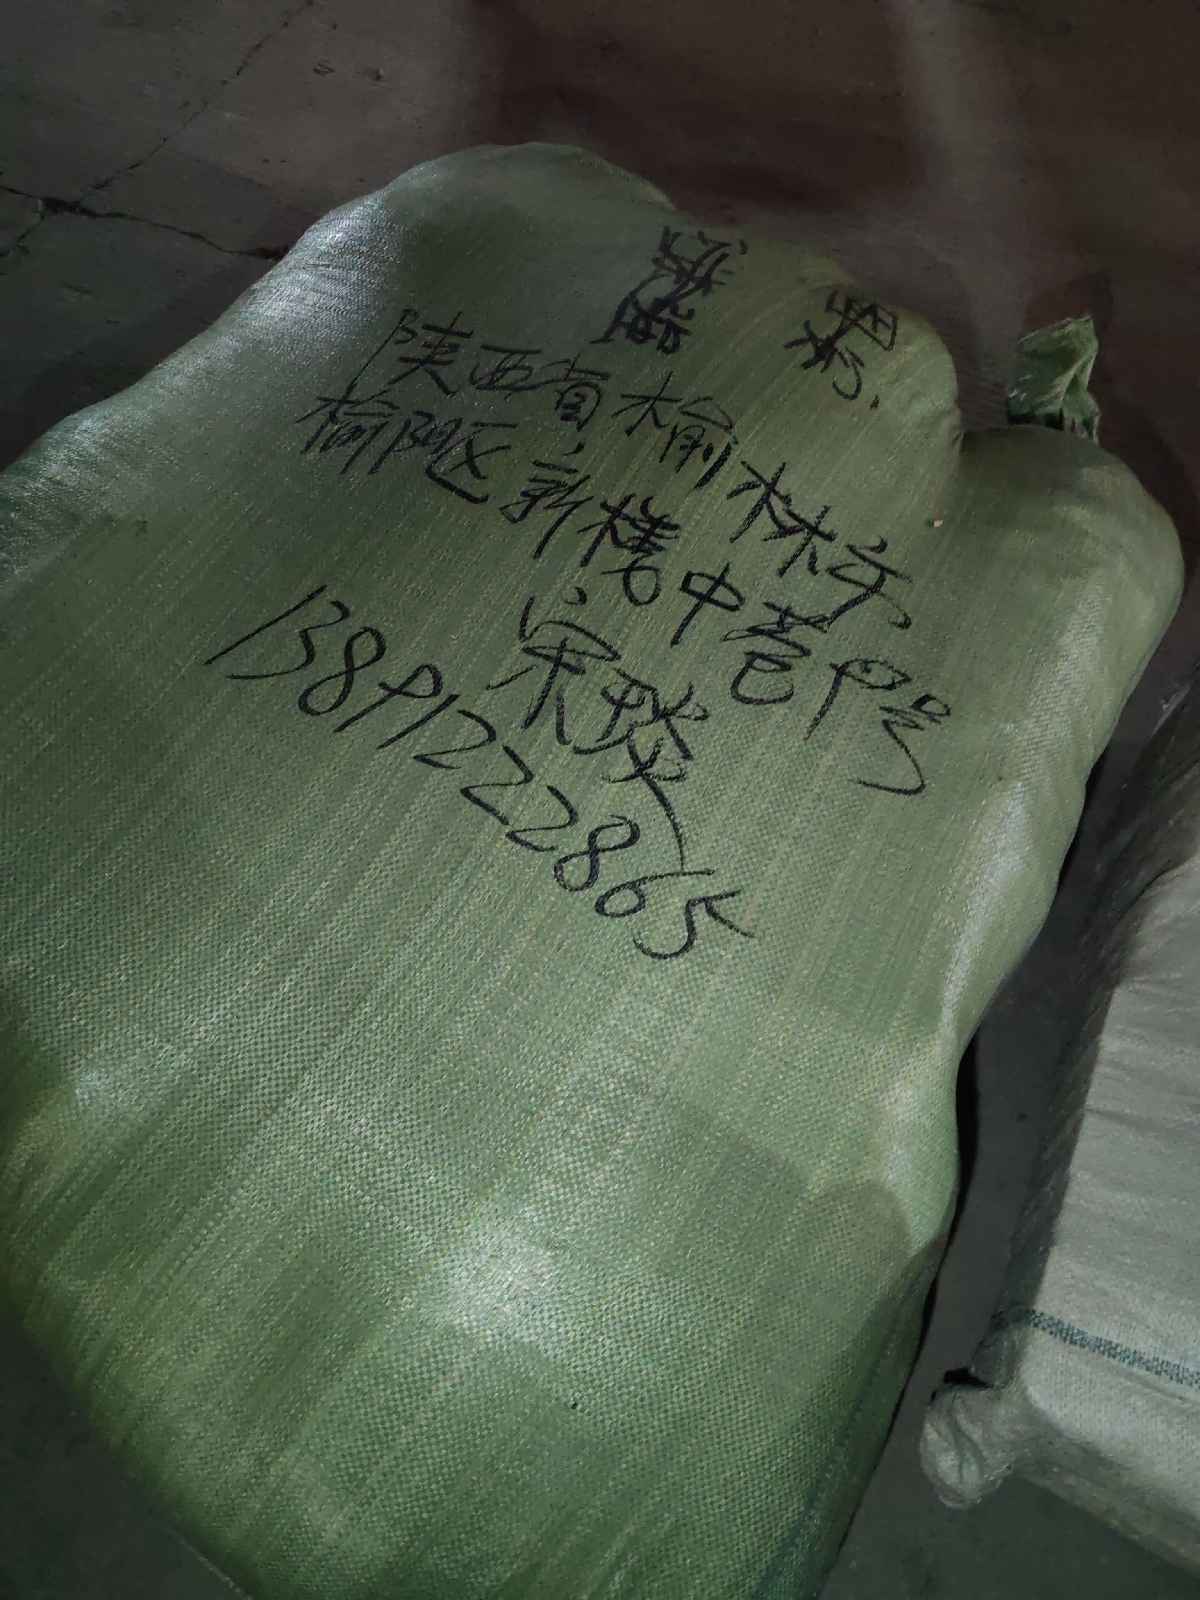 陕西省榆林市
榆阳区新楼中巷四号
宋燚
13891222865